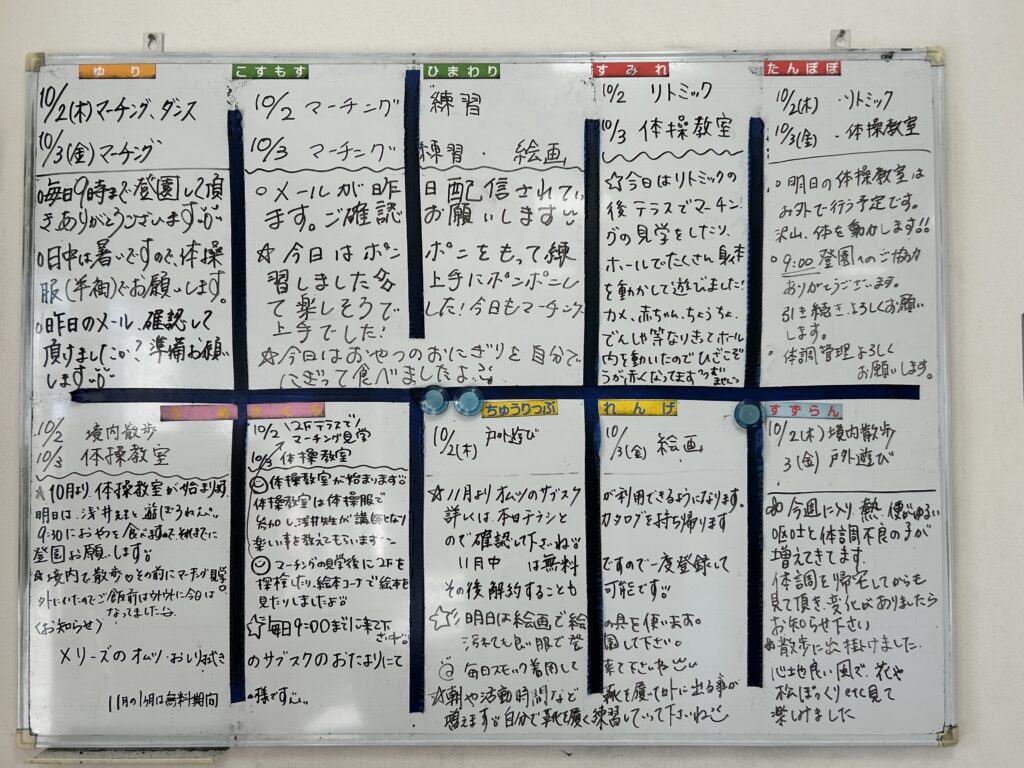 ゆり
10/2(木)マーチング、ダンス
10/3(金)マーチング
○毎日9時まで登園して頂
きありがとうございます
○日中は暑いですので、体操
服(半袖)でお願いします。
○昨日のメール、確認して
頂けましたか?準備お願い
します
こすもす ひまわり
10/2 マーチング 練習
10/3 マーチング 練習・絵画
○メールが昨日配信されてい
ます。ご確認お願いします
☆今日はポンポンをもって練
習しました 上手にポンポンし
て楽しそうでした!今日もマーチング
上手でした!
☆今日はおやつのおにぎりを自分で
にぎって食べましたよ
すみれ
10/2 リトミック
10/3 体操教室
☆今日はリトミックの
後テラスでマーチン
グの見学をしたり、
ホールでたくさん身体
を動かして遊びました!
カメ、赤ちゃん、ちょうちょ、
でんしゃ等なりきってホール
内を動いたのでひざこぞ
うが赤くなってます
たんぽぽ
10/2(木)・リトミック
10/3(金)・体操教室
○明日の体操教室は
お外で行う予定です。
沢山、体を動かします!!
○9:00登園へのご協力
ありがとうございます。
引き続きよろしくお願い
します。
○体調管理よろしく
お願いします。
うめ
10/2 境内散歩
10/3 体操教室
★10月より、体操教室が始まります
明日は、浅井先生と遊ぼうね
9:30におやつを食べますのでそれまでに
登園お願いします
★境内で散歩
外にいたのでご飯前は 今日は
なってました
〈お知らせ〉
メリーズのオムツ・おしりふき
11月の1ヶ月は無料期間
さくら
10/2 2Fテラスで
マーチング見学
10/3 体操教室
体操教室が始まります
体操教室は体操服で
参加し浅井先生が講師となり
楽しい事を教えてもらいます
マーチングの見学後に2Fを
探検したり、絵本コーナーで絵本を
見たりしましたよ
☆毎日9:00までに来て下
さい
のサブスクのおたよりにて
の様です
ちゅうりっぷ れんげ
10/2(木) 戸外遊び
10/3(金) 絵画
☆11月よりオムツのサブスクが利用できるようになります。
詳しくは、本日チラシとカタログを持ち帰ります
ので確認して下さいね
11月中は無料ですので一度登録して
その後解約することも可能です
☆明日は絵画で絵の具を使います。
汚れても良い服で登園して下さい。
@毎日スモック着用して来て下さいね
☆朝や活動時間など靴を履いて外に出る事が
増えます 自分で靴を履く練習していって下さいね
すずらん
10/2(木)境内散歩
3(金)戸外遊び
今週に入り熱、便がゆるい
嘔吐と体調不良の子が
増えてきてます。
体調を帰宅してからも
見て頂き、変化がありましたら
お知らせ下さい
★散歩に出掛けました。
心地良い風で、花や
松ぼっくりetc見て
楽しけました